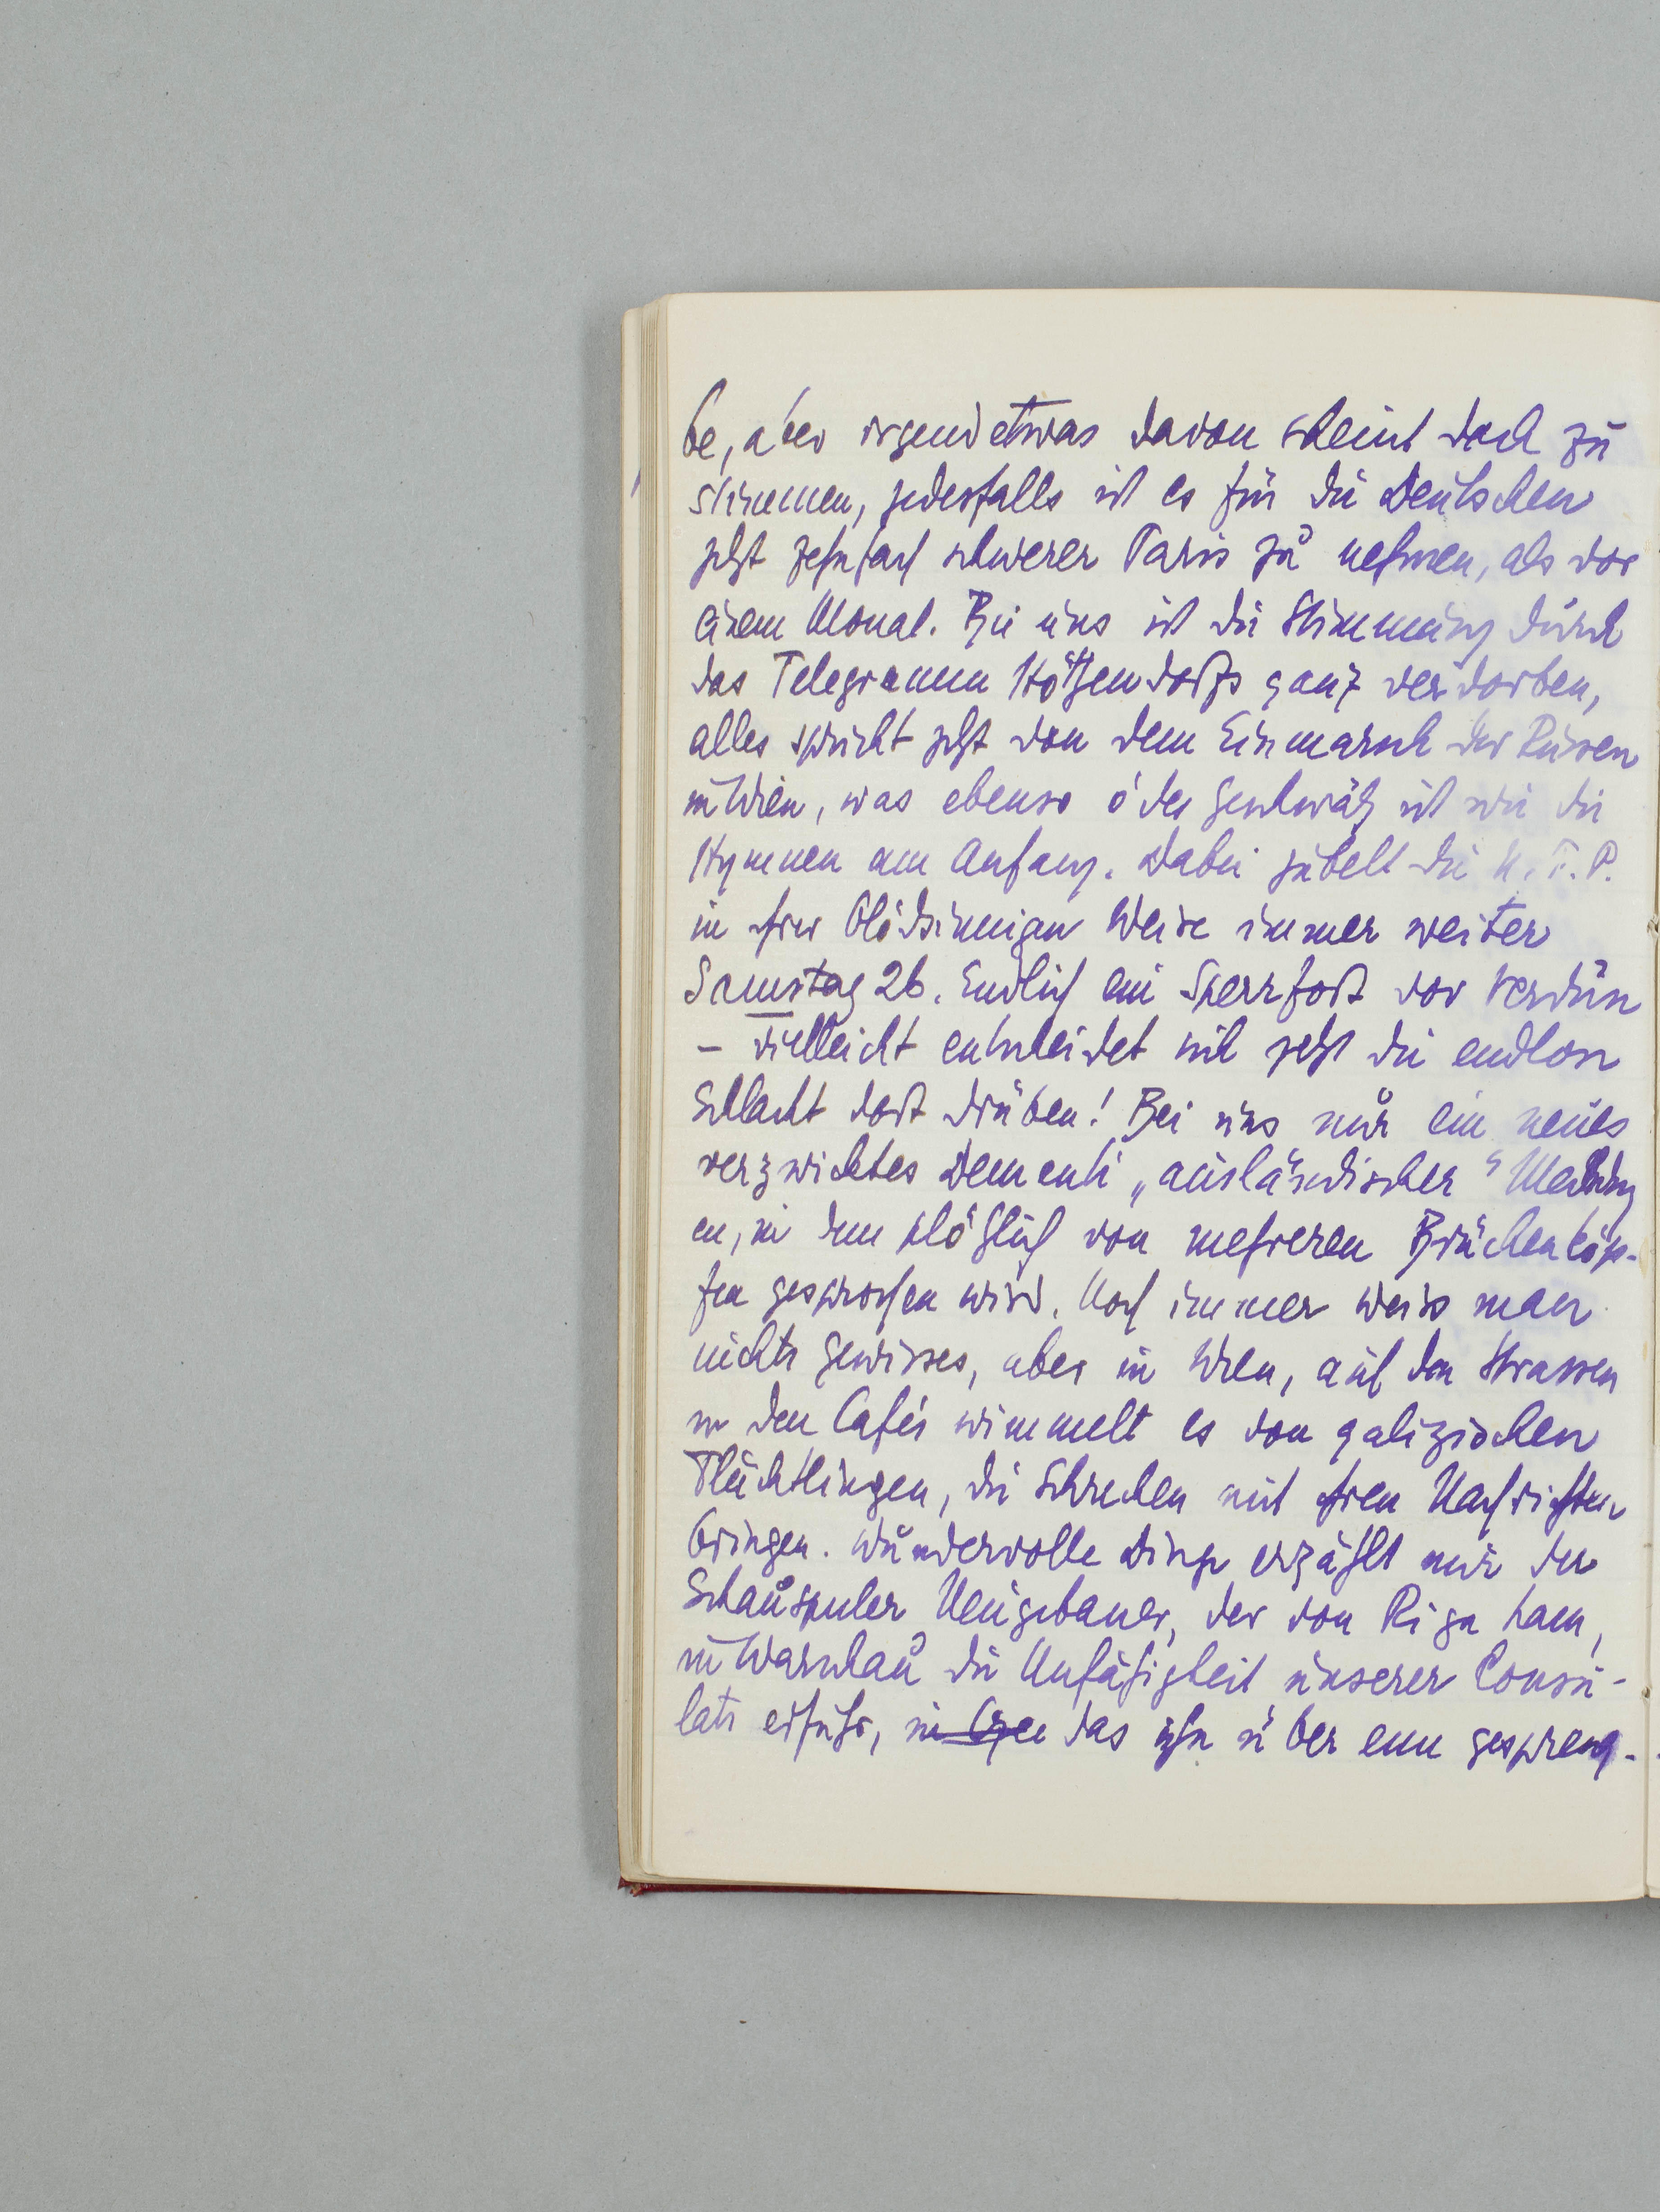 be, aber irgend etwas davon scheint doch zu
stimmen, jedesfalls ist es für die Deutschen
jetzt zehnfach schwerer Paris zu nehmen, als vor
einem Monat. Bei uns ist die Stimmung durch
das Telegramm Hötzendorfs ganz verdorben,
alles spricht jetzt von dem Einmarsch der Russen
in Wien, was ebenso ödes Geschwätz ist wie die
Hymnen am Anfang. Dabei jubelt die N. F. P.
in ihrer blödsinnigen Weise immer weiter
Samstag 26. Endlich ein Sperrfort vor Verdun
– vielleicht entscheidet sich jetzt die endlose
Schlacht dort drüben! Bei uns nur ein neues
verzwicktes Dementi „ausländischer“ Meldung
en, in dem plötzlich von mehreren Brückenköp-
fen gesprochen wird. Noch immer weiss man
nichts gewisses, aber in Wien, auf den Strassen
in den Cafés wimmelt es von galizischen
Flüchtlingen, die Schrecken mit ihren Nachrichten
bringen. Wundervolle Dinge erzählt mir der
Schauspieler Neugebauer, der von Riga kam,
in Warschau die Unfähigkeit unserer Consu-
lats erfuhr, das ihn über eine gespreng-